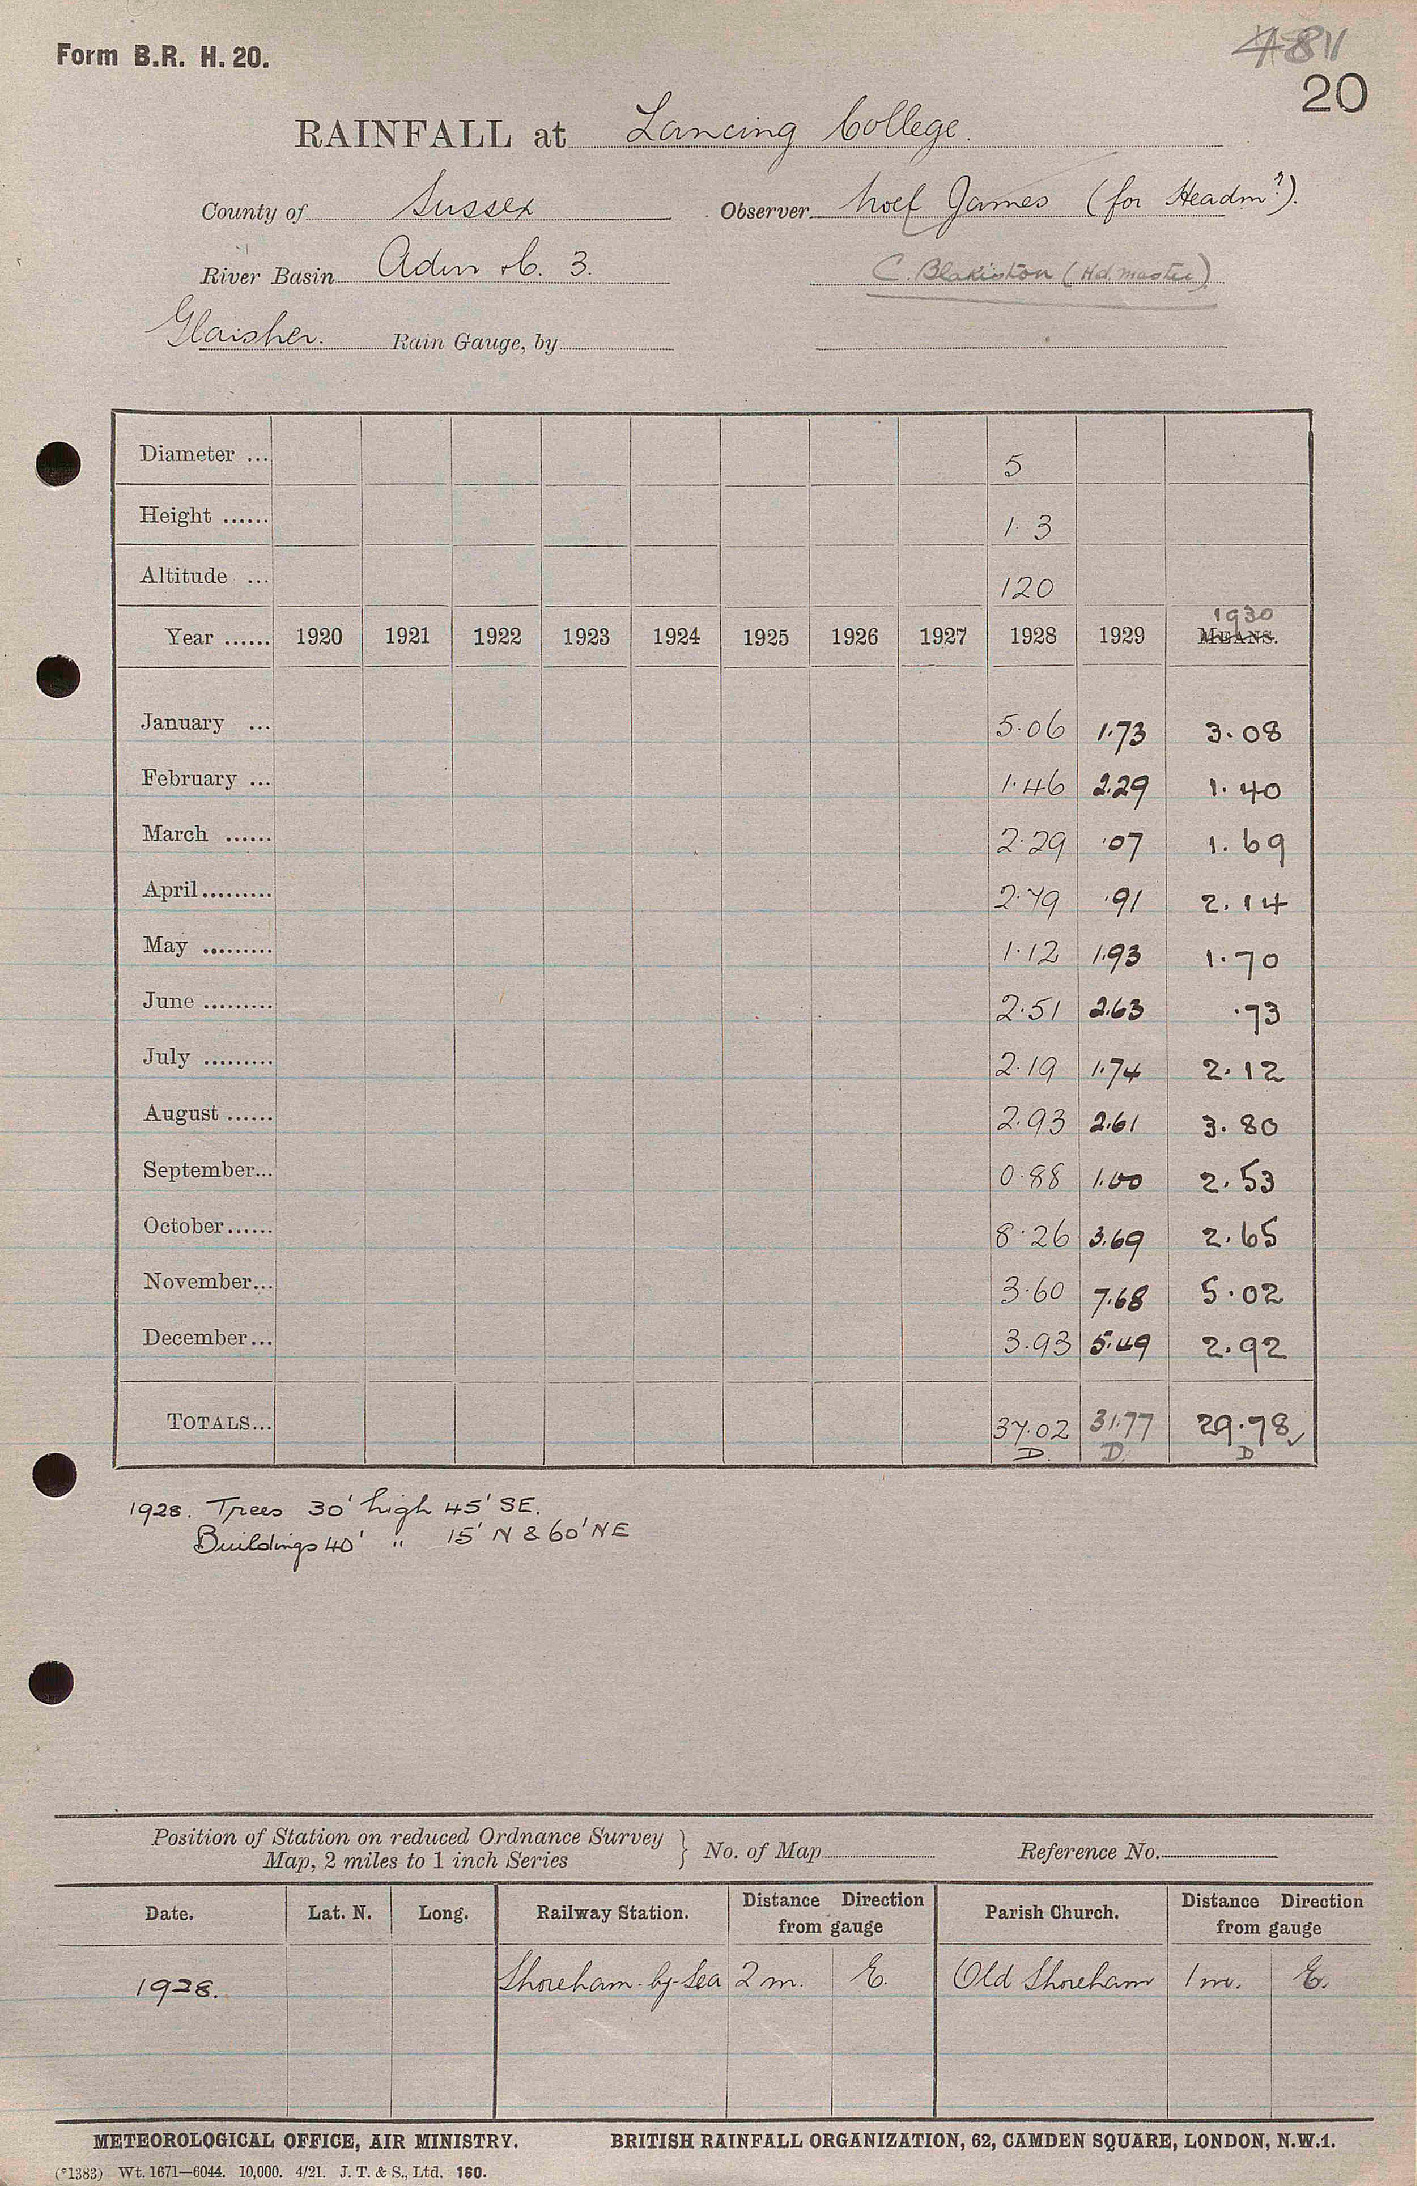 Form B.R. H. 20.
4811
20
RAINFALL at Lancing College.
County of Sussex Observer Noel James (for Headmr).
River Basin Adur &c. 3. C. Blakiston (Hd. master)
Glaisher. Rain Gauge, by
Diameter ... 5
Height ...... 1.3
Altitude ... 120
1930
Year ...... 1920 1921 1922 1923 1924 1925 1926 1927 1928 1929 MEANS.
January ... 5.06 1.73 3.08
February ... 1.46 2.29 1.40
March ...... 2.29 .07 1.69
April ......... 2.79 .91 2.14
May ......... 1.12 1.93 1.70
June ......... 2.51 2.63 .73
July ......... 2.19 1.74 2.12
August ...... 2.93 2.61 3.80
September... 0.88 1.00 2.53
October...... 8.26 3.69 2.65
November... 3.60 7.68 5.02
December... 3.93 5.49 2.92
TOTALS... 37.02 31.77 29.78✓
D. D. D
1928. Trees 30' high 45' SE.
Buildings 40' " 15' N & 60' NE
Position of Station on reduced Ordnance Survey
Map, 2 miles to 1 inch Series } No. of Map Reference No.
Date. Lat. N. Long. Railway Station. Distance Direction from gauge Parish Church. Distance Direction from gauge
1928. Shoreham-by-Sea 2 m. E. Old Shoreham 1 m. E.
METEOROLOGICAL OFFICE, AIR MINISTRY. BRITISH RAINFALL ORGANIZATION, 62, CAMDEN SQUARE, LONDON, N.W.1.
(*1383) Wt. 1671—6044. 10,000. 4/21. J. T. & S., Ltd. 160.